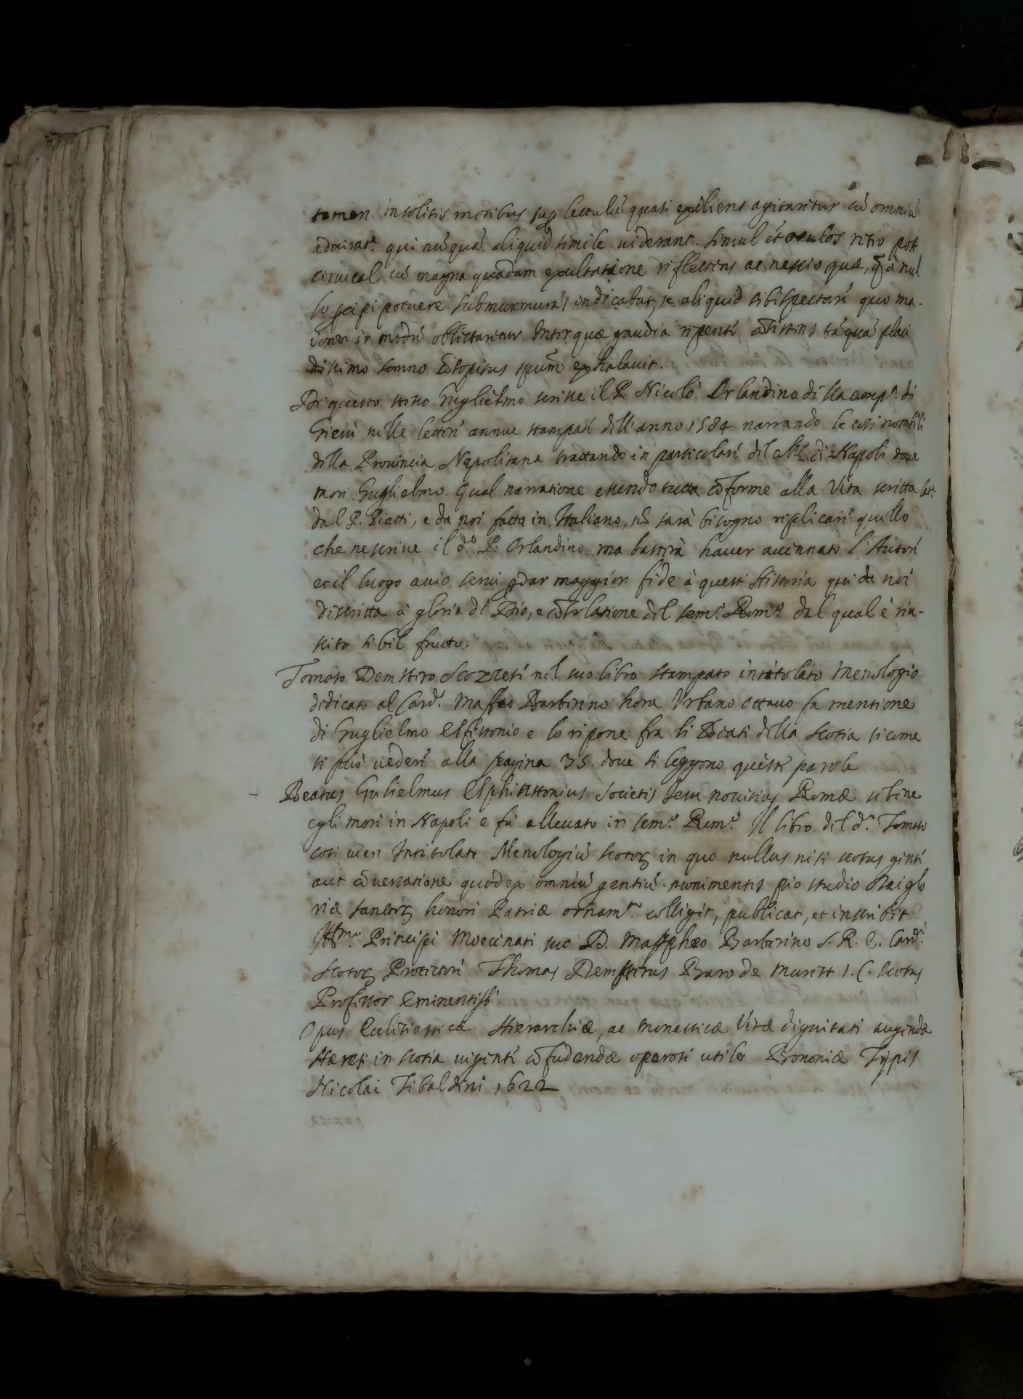 tamen insolitis motibus sup lectulũ quasi exiliens agitaretur cũ omniũ
admirat.e qui nũquã aliquid simile viderant. simul et oculos retro post
cervical cũ magna quadam exultatione reflectens ac nescio quæ, q̃ à nul
lo p̃cipi potuere submurmurãs indicabat, se aliquid sibi spectari quo ma-
iorem in modũ oblectaretur. Inter quæ gaudia repentè cõsistens tãquã placi
dissimo somno cõsopitus spũm exhalavit.
Di questo stesso Guglielmo scrisse il P. Nicolò Orlandino della comp.a di
Giesù nelle lettere annue stampate dell'anno 1584 narrando le cose notabili
della Provincia Napolitana trattando in particolare del Coll.o di Napoli dove
morì Guglielmo. Qual narratione essendo tutta cõforme alla Vita scritta lat.
dal P. Piatti, e da noi fatta in Italiano, nõ sarà bisogno replicare quello
che ne scrive il d.o P. Orlandino, ma basterà haver accennato l'Autore
et il luogo a dar maggior fede à questa Historia qui da noi
descritta à gloria di Dio, e cõsolatione del sem.o Rom.o dal qual è riu-
scito sì bel frutto.
Tomaso Demstero Scozzese nel suo libro stampato intitolato Menologio
dedicato al Card.l Maffeo Barberino hora Urbano ottavo fa mentione
di Guglielmo Elfistonio e lo ripone fra li Beati della Scotia sicome
si può vedere alla pagina 35. dove si leggono queste parole
Beatus Gulielmus Elphinstonius Societis Iesu novitius Romæ se bene
egli morì in Napoli e fù allevato in sem.o Rom.o Il libro del d.o Tomaso
così vien Intitolato Menologiũ scotoꝝ in quo nullus nisi scotus gente
aut cõversatione quod ex omniũ gentiũ monimentis pio studio Dei glo
riæ sanctoꝝ honori Patriæ ornam.to colligit, publicat, et inscribit
Ill.mo Principi Moecenati suo D. Maffhæo Barberino S. R. E. Card.li
Scotoꝝ Protectori Thomas Demsterus Baro de Muresk I. C. Scotus
Professor Eminentiss.
Opus Ecclesiasticæ Hierarchiæ, ac monasticæ Vitæ dignitati augendæ
Hæresi in scotia vigenti cõfudendæ operosè utile Bononiæ Typis
Nicolai Tibaldini 1622